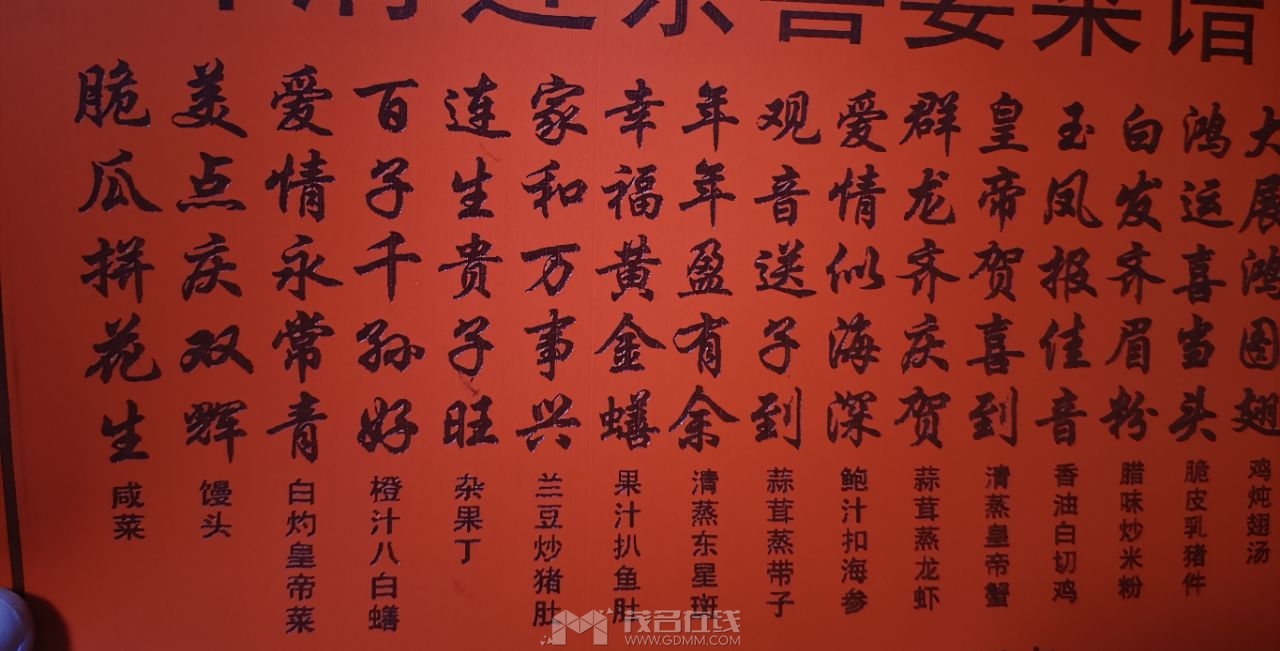 府迎亲喜宴菜谱
大展鸿图翅
鸡炖翅汤
鸿运喜当头
脆皮乳猪件
白发齐眉粉
腊味炒米粉
玉凤报佳音
香油白切鸡
皇帝贺喜到
清蒸皇帝蟹
群龙齐庆贺
蒜茸蒸龙虾
爱情似海深
鲍汁扣海参
观音送子到
蒜茸蒸带子
年年盈有余
清蒸东星斑
幸福黄金蟮
果汁扒鱼肚
家和万事兴
兰豆炒猪肚
连生贵子旺
杂果丁
百子千孙好
橙汁八白蟮
爱情永常青
白灼皇帝菜
美点庆双辉
馒头
脆瓜拼花生
咸菜
茂名在线
WWW.GDMM.COM